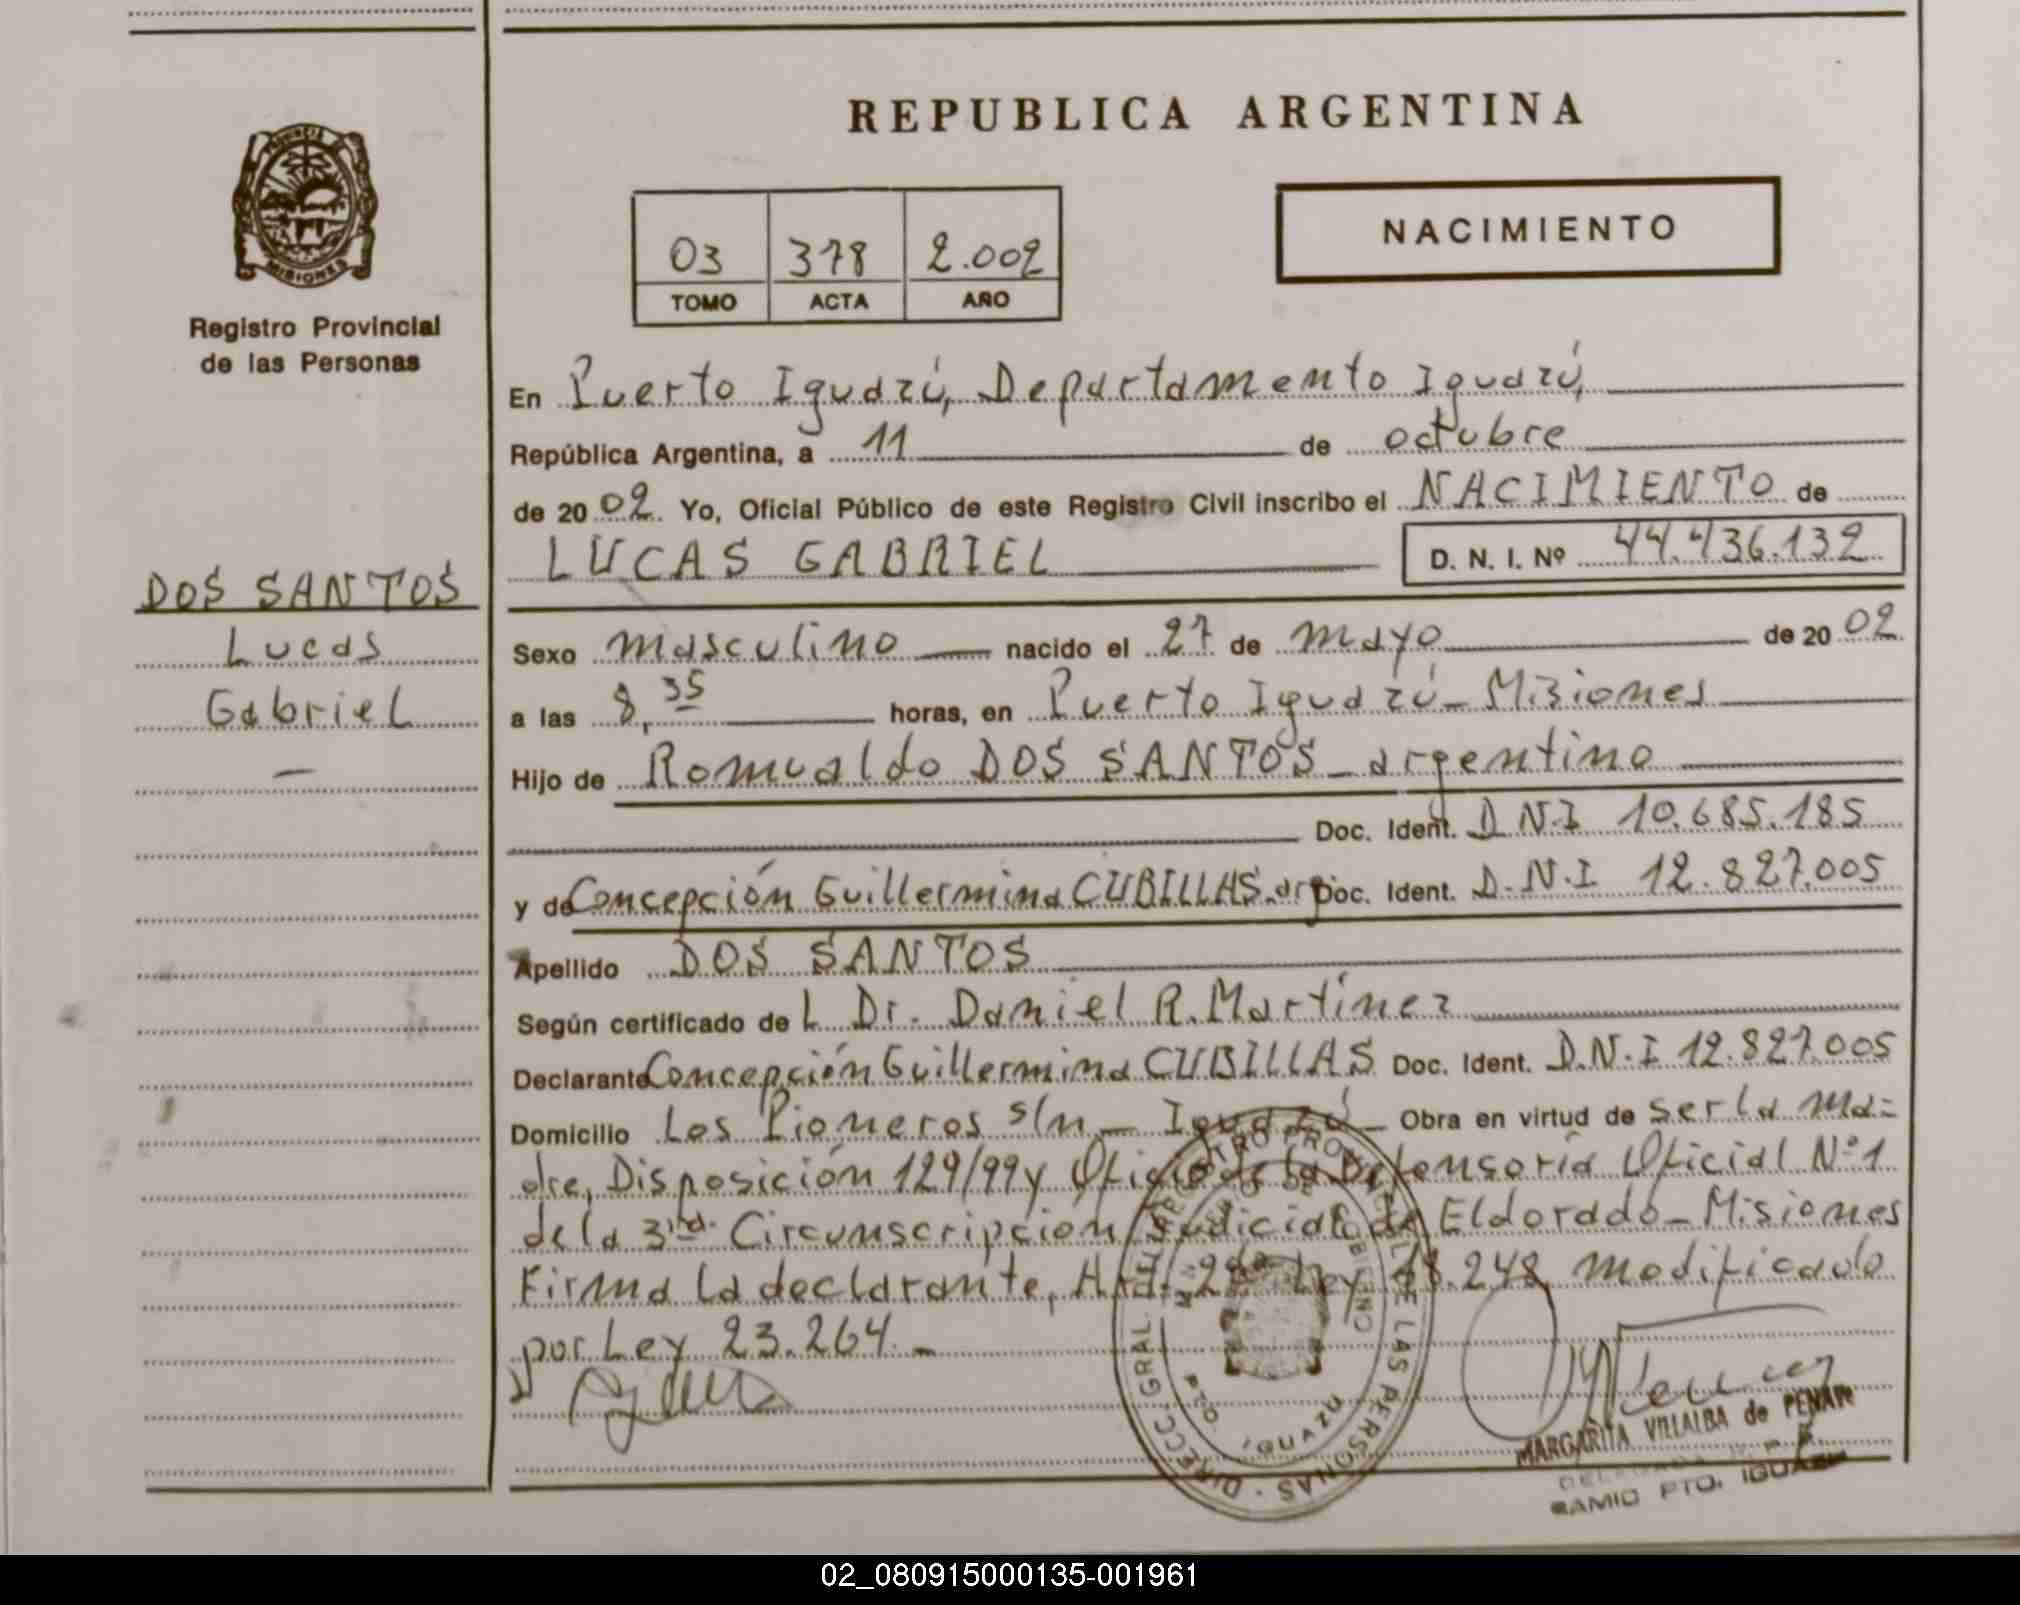 REPUBLICA ARGENTINA
NACIMIENTO
03 378 2.002
TOMO ACTA AÑO
PROVINCIA DE
MISIONES
Registro Provincial
de las Personas
DOS SANTOS
Lucas
Gabriel
En Puerto Iguazú, Departamento Iguazú,
República Argentina, a 11 de octubre
de 2002 Yo, Oficial Público de este Registro Civil inscribo el NACIMIENTO de
LUCAS GABRIEL D. N. I. Nº 44.436.132
Sexo masculino nacido el 27 de mayo de 2002
a las 8,35 horas, en Puerto Iguazú - Misiones
Hijo de Romualdo DOS SANTOS - argentino
Doc. Ident. D.N.I 10.685.185
y de Concepción Guillermina CUBILLAS - arg Doc. Ident. D.N.I 12.827.005
Apellido DOS SANTOS
Según certificado de L Dr. Daniel R. Martínez
Declarante Concepción Guillermina CUBILLAS Doc. Ident. D.N.I 12.827.005
Domicilio Los Pioneros s/n - Iguazú - Obra en virtud de ser la ma-
dre, Disposición 129/99 y Oficio de la Defensoría Oficial Nº 1
de la 3ra. Circunscripción Judicial de Eldorado - Misiones
Firma la declarante, Ley 18.248 modificado
por Ley 23.264.-
DIRECC. GRAL. REGISTRO PROVINCIAL DE LAS PERSONAS
PTO. IGUAZU
MARGARITA VILLALBA de
DELEGADA R. P. P.
PTO. IGUAZU
02_080915000135-001961